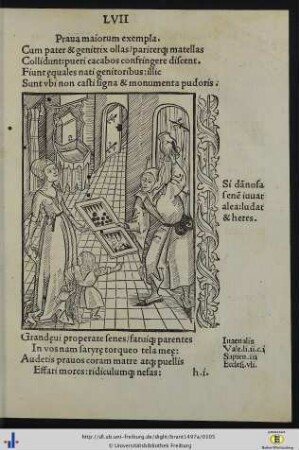 LVII
Praua maiorum exempla.
Cum pater & genitrix ollas/pariterq; matellas
Collidunt: pueri cacabos confringere discent.
Fiunt equales nati genitoribus: illic
Sunt vbi non casti signa & monumenta pudoris:
Si dãnosa
senẽ iuuat
alea: ludat
& heres.
Grandęui properate senes/fatuiq; parentes
In vos nam satyrę torqueo tela meę:
Audetis prauos coram matre atq; puellis
Effari mores: ridiculumq; nefas:
Iuuenalis
Sapien. iii
Eccłesi. vii.
h.i.
http://dl.ub.uni-freiburg.de/diglit/brant1497a/0105
© Universitätsbibliothek Freiburg